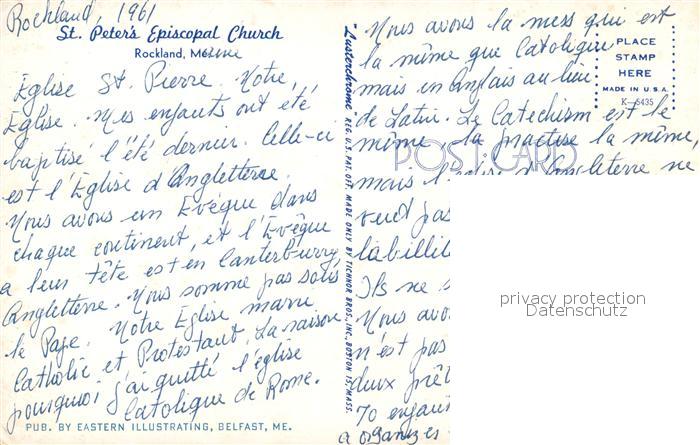 Rockland, 1961
St. Peter's Episcopal Church
Rockland, Maine
Eglise St. Pierre. Notre
Eglise. Mes enfants ont été
baptisé l'été dernier. Celle-ci
est l'Eglise d'Angleterre.
Nous avons un Evêque dans
chaque continent, et l'Evêque
a leur tête est en Canterburry
Angleterre. Nous somme pas sous
le Pape. Notre Eglise marie
Catholic et Protestant. La raison
pourquoi j'ai quitté l'église
Catolique de Rome.
PUB. BY EASTERN ILLUSTRATING, BELFAST, ME.
"Lusterchrome" REG. U.S. PAT. OFF. MADE ONLY BY TICHNOR BROS., INC., BOSTON 15, MASS.
PLACE
STAMP
HERE
MADE IN U.S.A.
K-6435
POST CARD
Nous avons la mess qui est
la même que Catolique
mais en Anglais au lieu
de Latin. Le Catechism est le
même la practise la même,
mais l'Eglise d'Angleterre ne
veut pas
labillit
Ils ne s
Nous avo
n'est pas
deux prêt
70 enfant
a organizes
privacy protection
Datenschutz